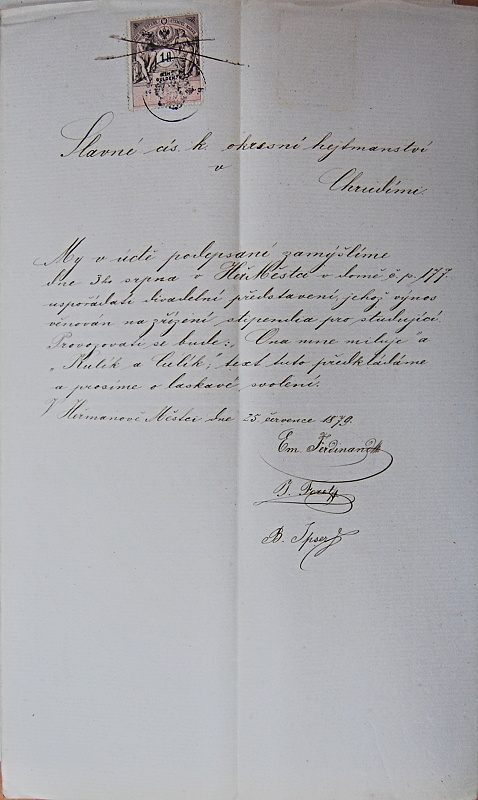 Slavné cís. k. okresní hejtmanství
v
Chrudími.
My v úctě podepsaní zamýšlíme
dne 3ho srpna v Heř. Městci v domě č. p. 177.
uspořádati divadelní představení, jehož výnos
věnován na zřízení stipendia pro studující
Provozovati se bude: „Ona mne miluje a
„Kulík a Culík“, text tuto předkládáme
a prosíme o laskavé svolení.
V Heřmanově Městci dne 25. července 1879.
Em. Ferdinand
B.
B. Ipser